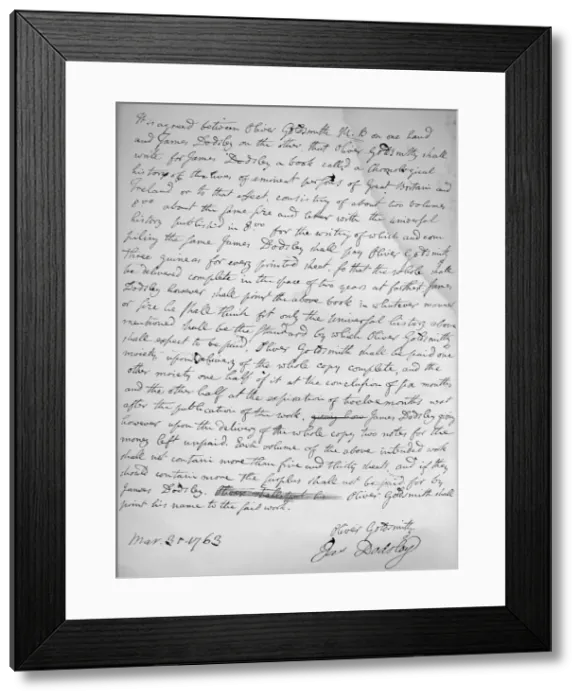 It is agreed between Oliver Goldsmith M. B on one hand
and James Dodsley on the other that Oliver Goldsmith shall
write for James Dodsley a book called a Chronological
history of the lives of eminent persons of Great Britain and
Ireland or to that effect, consisting of about two volumes
8vo about the same size and letter with the universal
history published in 8vo for the writing of which and com
piling the same James Dodsley shall pay Oliver Goldsmith
three guineas for every printed sheet. So that the whole shall
be delivered complete in the space of two years at farthest, James
Dodsley however shall print the above book in whatever manner
or size he shall think fit only the universal history above
mentioned shall be the standard by which Oliver Goldsmith
shall expect to be paid. Oliver Goldsmith shall be paid one
moiety upon delivery of the whole copy complete, and the
other moiety one half of it at the conclusion of six months
and the other half at the expiration of twelve months next
after the publication of the work. James Dodsley giving
however upon the delivery of the whole copy two notes for the
money left unpaid. Each volume of the above intended work
shall not contain more than five and thirty sheets and if they
should contain more the surplus shall not be paid for by
James Dodsley. Oliver Goldsmith shall
print his name to the said work.
Oliver Goldsmith
Mar. 31 1763
Jas Dodsley